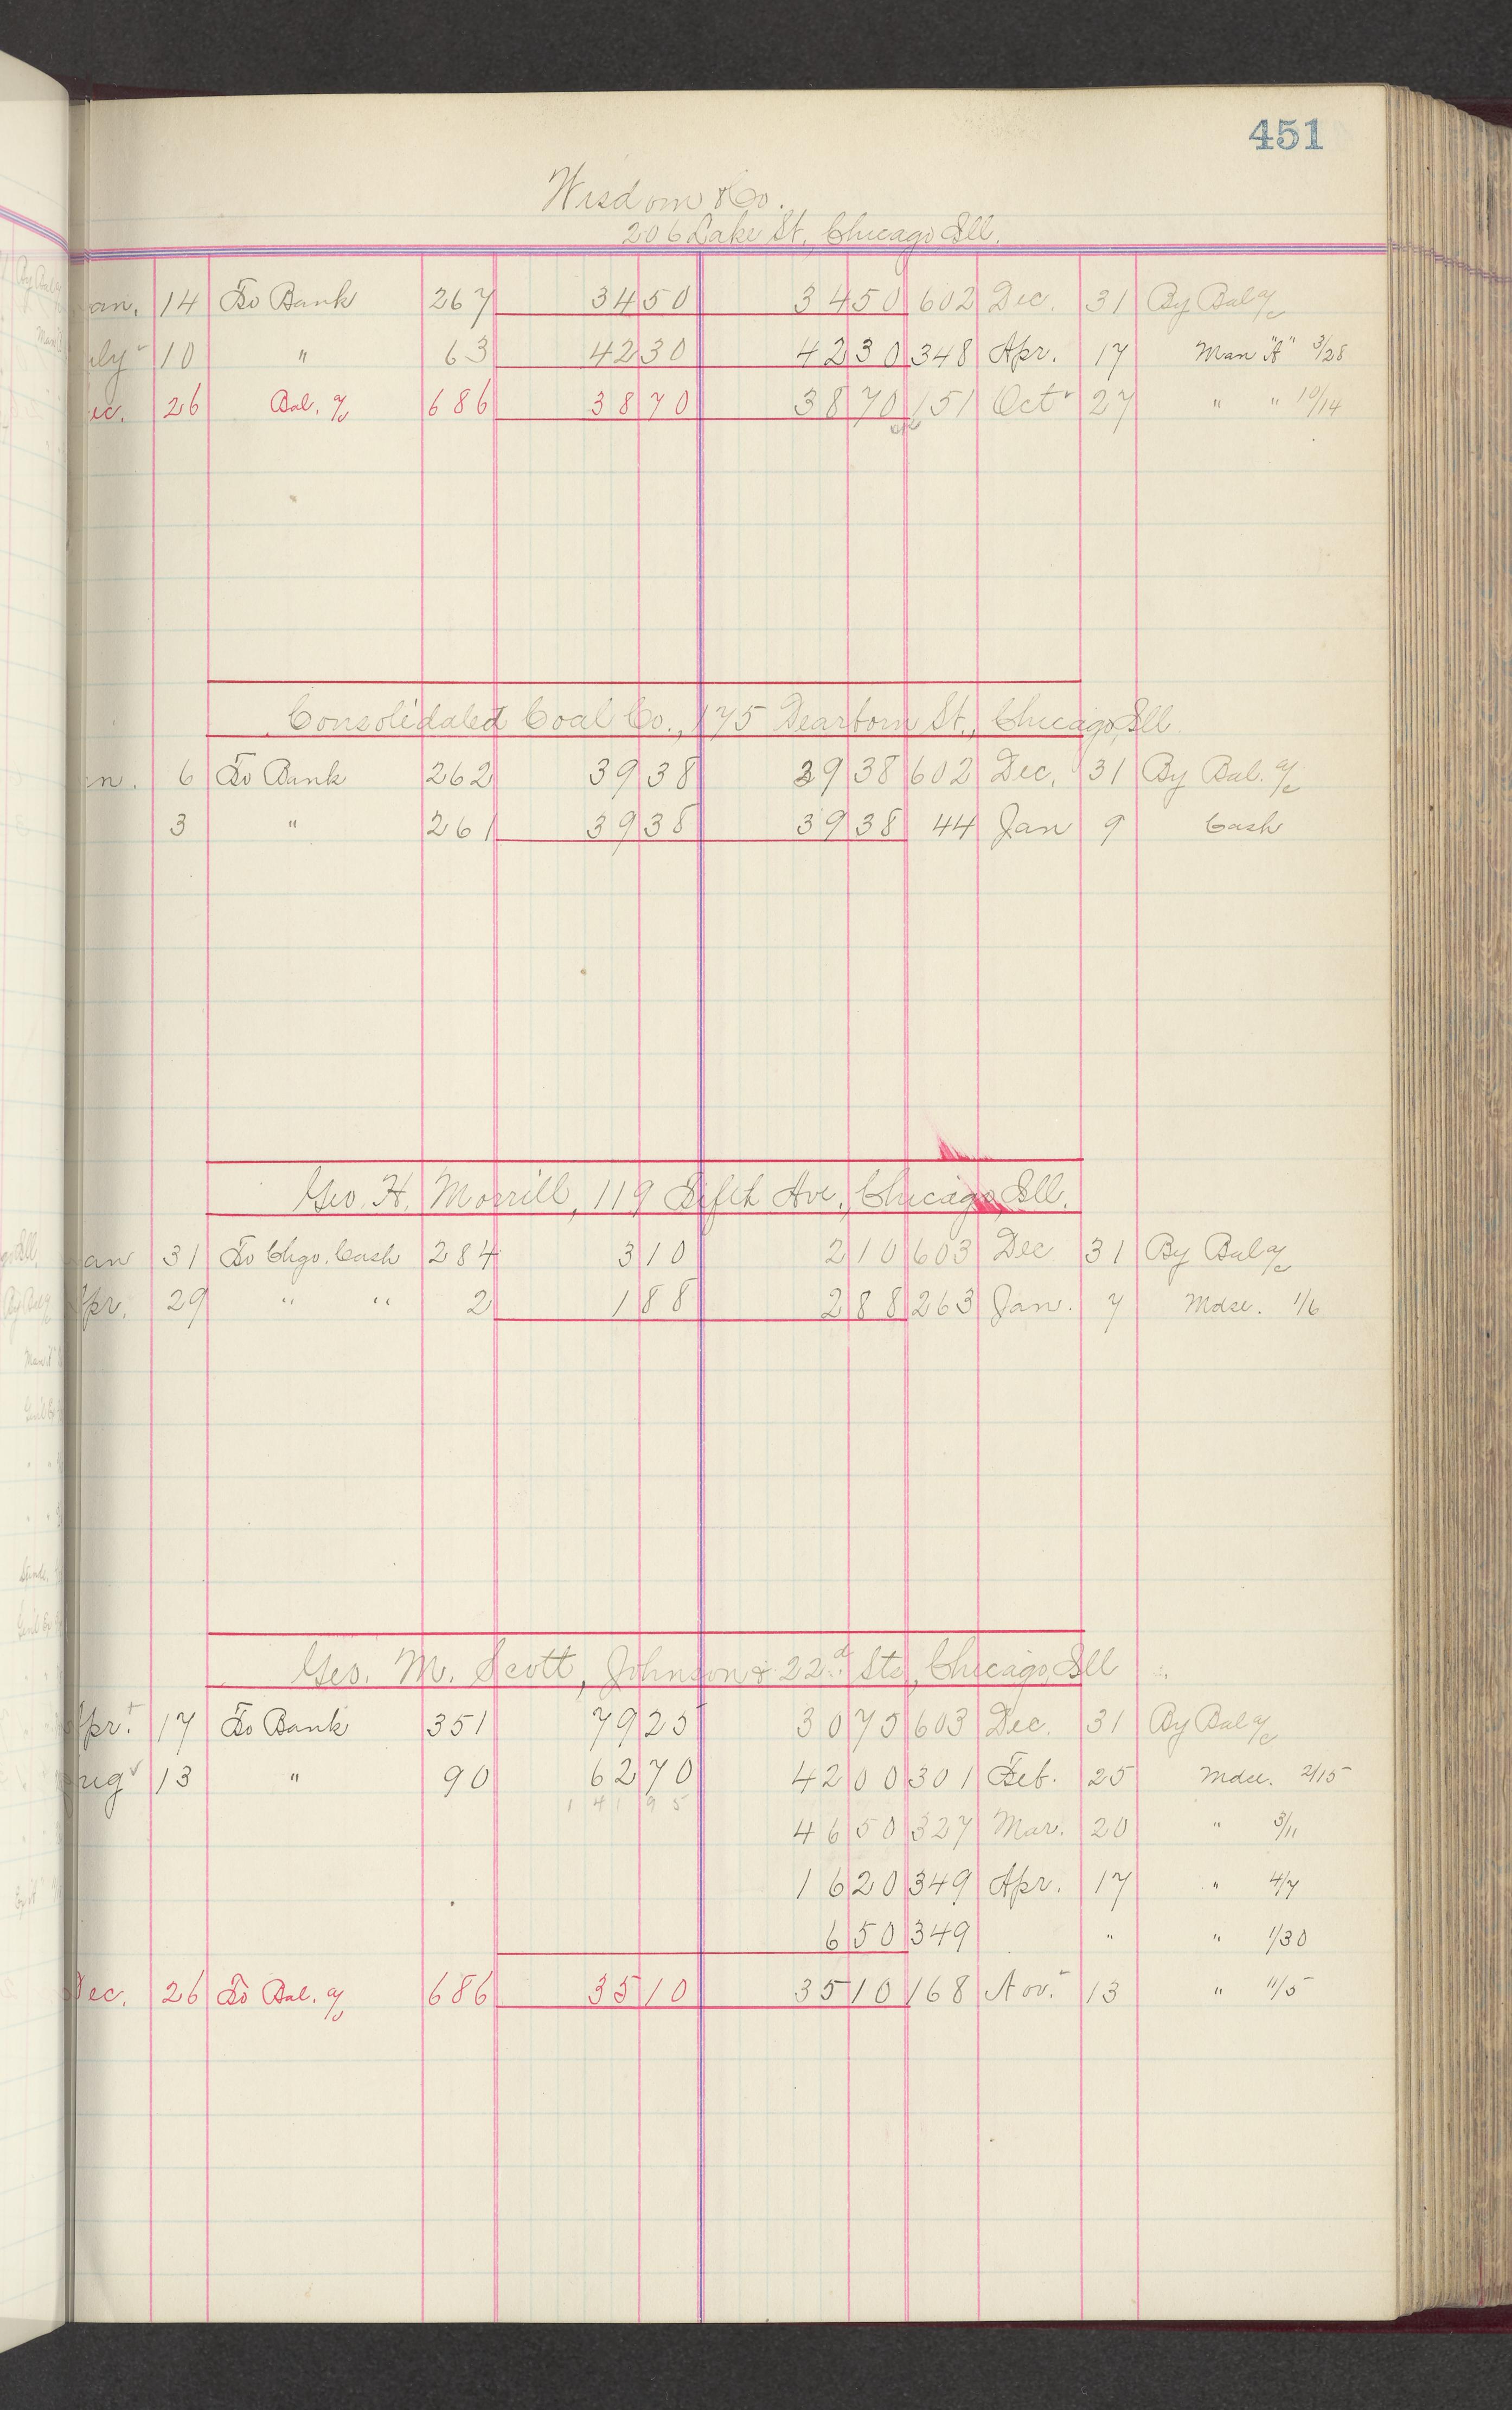 451
Wisdom & Co.
206 Lake St., Chicago Ill.
an. 14 To Bank 267 34 50 34 50 602 Dec. 31 By Bal a/c
uly 10 " 63 42 30 42 30 348 Apr. 17 Man "A" 3/28
ec. 26 Bal. a/c 686 38 70 38 70 151 Oct 27 " " 10/14
Consolidated Coal Co., 175 Dearborn St., Chicago, Ill.
n. 6 To Bank 262 39 38 39 38 602 Dec. 31 By Bal. a/c
3 " 261 39 38 39 38 44 Jan 9 Cash
Geo. H. Morrill, 119 Fifth Ave., Chicago, Ill.
an 31 To Chgo. Cash 284 3 10 2 10 603 Dec 31 By Bal a/c
Apr. 29 " " 2 1 88 2 88 263 Jan. 7 Mdse. 1/6
Geo. M. Scott, Johnson & 22d Sts, Chicago, Ill
Apr. 17 To Bank 351 79 25 30 75 603 Dec. 31 By Bal a/c
Aug 13 " 90 62 70 42 00 301 Feb. 25 Mdse. 2/15
141 95
46 50 327 Mar. 20 " 3/11
16 20 349 Apr. 17 " 4/7
6 50 349 " " 1/30
Dec. 26 To Bal. a/c 686 35 10 35 10 168 Nov. 13 " 11/5